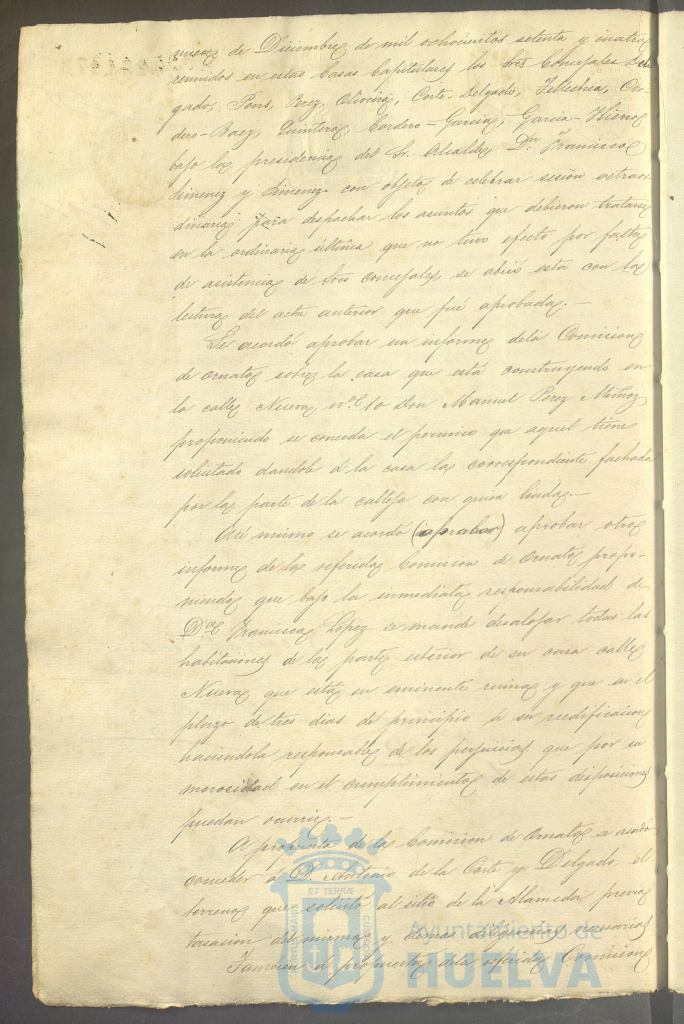 nueve de Diciembre de mil ochocientos setenta y cuatro
reunidos en estas Casas Capitulares los Sres Concejales Del-
gado, Pons, Perez, Oliveira, Corte-Delgado, Cor-
dero-Baez, Quintero, Cordero-Garcia, Garcia-Hierro
bajo la presidencia del Sr. Alcalde Dn. Francisco
Jimenez y Jimenez con objeto de celebrar sesion extraor
dinaria para despachar los asuntos que debieron tratarse
en la ordinaria última que no tuvo efecto por falta
de asistencia de Sres concejales, se abrió esta con la
lectura del acta anterior que fué aprobada.-
Se acordó aprobar un informe dela Comision
de ornato sobre la casa que está construyendo en
la calle Nueva nº 10 Don Manuel Perez Muñoz
proponiendo se conceda el permiso que aquel tiene
solicitado dandole á la casa la correspondiente fachada
por la parte de la calleja con quien linda.-
Asi mismo se acordó (aprobar) aprobar otro
informe de la referida Comision de Ornato propo-
niendo que bajo la inmediata responsabilidad de
Dª Francisca Lopez se mande desalojar todas las
habitaciones de la parte esterior de su casa calle
Nueva que está en eminente ruina y que en el
plazo de tres dias dé principio á su reedificacion
haciendola responsable de los perjuicios que por su
morosidad en el cumplimiento de estas disposiciones
puedan ocurrir.-
A propuesta de la Comision de Ornato se acordó
conceder á D. Antonio de la Corte y Delgado, el
terreno que solicitó al sitio de la Alameda previa
tasacion del mismo y demas diligencias necesarias
Tambien á propuesta dela referida Comision
ET TERRÆ
Ayuntamiento de
HUELVA